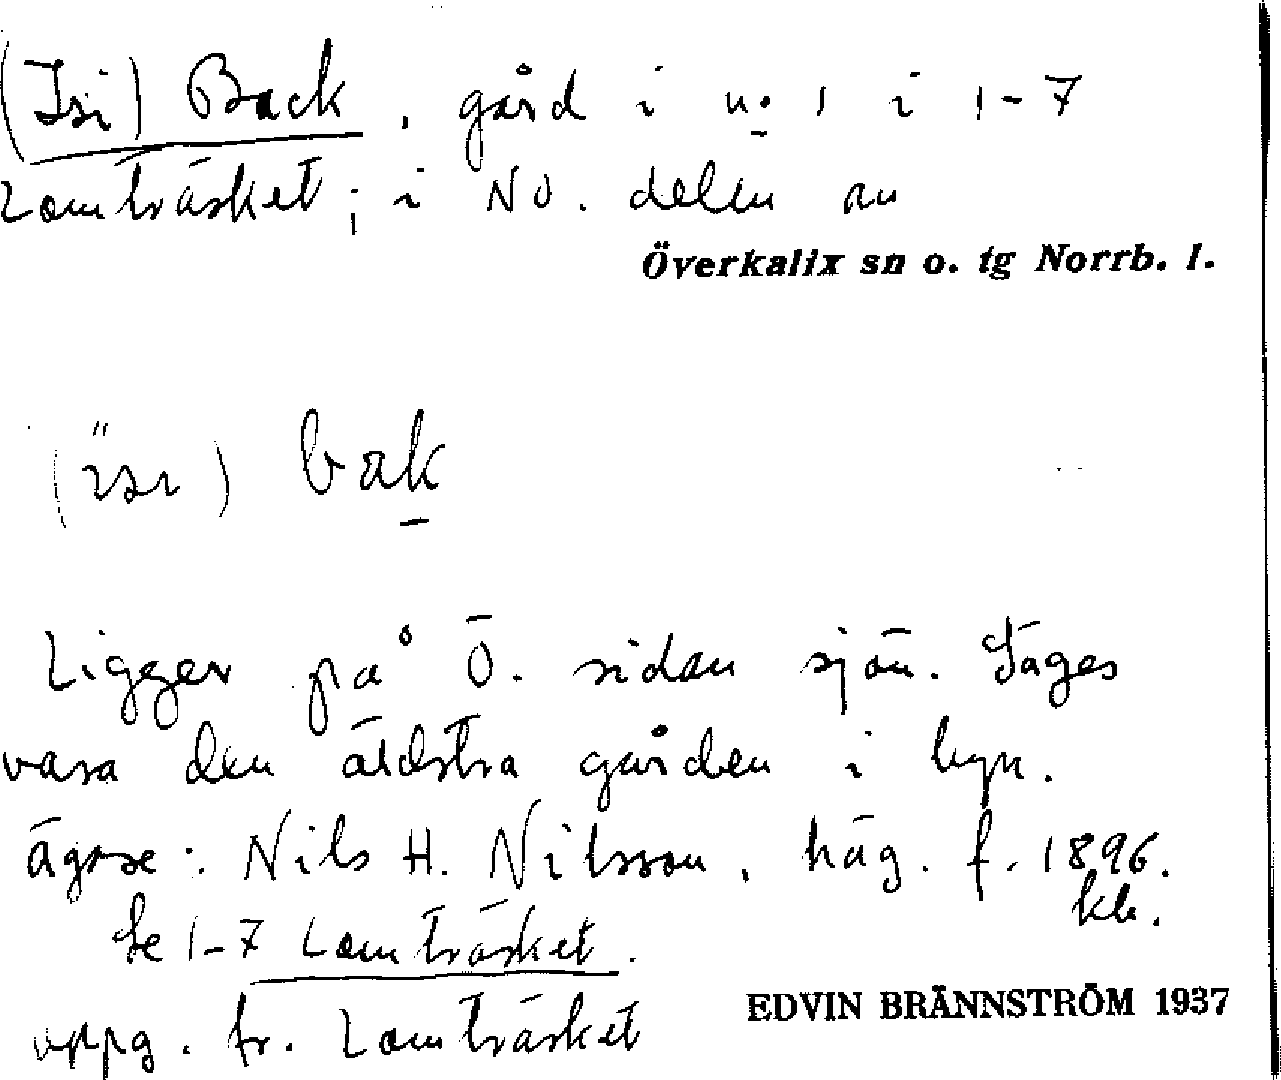 (Isi) Back, gård i n:o 1 i 1-7
Lomträsket; i NO. delen av
Överkalix sn o. tg Norrb. l.
(ïsı) bak
Ligger på Ö. sidan sjön. Säges
vara den äldsta gården i byn.
Ägare: Nils H. Nilsson, häg. f. 1896.
kb.
Se 1-7 Lomträsket.
uppg. fr. Lomträsket
EDVIN BRÄNNSTRÖM 1937